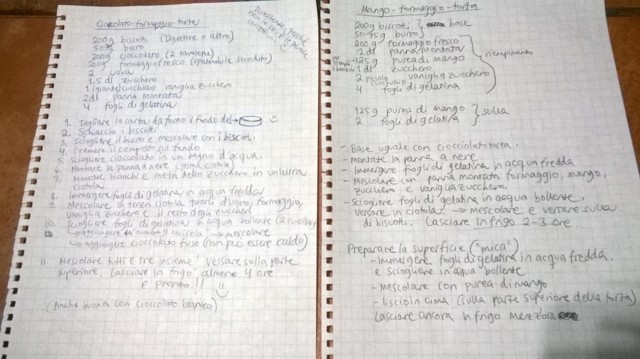 Cioccolato-formaggio-torta
200g biscotti (Digestive o altro)
50-75g burro
200g cioccolato (2 tavolette)
200g formaggio fresco (spalmabile
2 uova
1.5 dl zucchero
1 cucchiaio vaniglia zucchero
2dl panna montata
4 fogli di gelatina
1. Tagliare la carta da forno
2. Schiaccia i biscotti
3. Sciogliere il burro e mescolare con i biscotti
4. Premere il composto sul fondo
5. Sciogliere cioccolato in un bagno d'acqua
6. Montare la panna a nere (prima ciotola)
7. Montare bianchi e metà dello zucchero in un'altra
ciotola
8. Immergere fogli di gelatina in acqua fredda
9. Mescolare la terza ciotola tuorli d'uovo, formaggio,
vaniglia zucchero e il resto degli zuccheri
10. Sciogliere fogli di gelatina in acqua bollente
→ mescolare
→ aggiungere cioccolato fuso (non può essere caldo)
11 Mescolare tutti e tre insieme! Versare sulla parte
superiore. Lasciare in frigo almeno 4 ore
È pronto!!
(Anche buona con cioccolato bianco)
Mango-formaggio-torta
200g biscotti } base
50-75g burro
200g formaggio fresco
2dl panna montata
125g purea di mango } riempimento
1dl zucchero
2 vaniglia zucchero
4 fogli di gelatina
125g purea di mango } sulla
2 fogli di gelatina
- Base uguale con cioccolatotorta.
- Montate la panna a nere.
- Immergere fogli di gelatina in acqua fredda
- Mescolare con panna montata formaggio, mango,
zucchero e vaniglia zucchero.
- Sciogliere fogli di gelatina in acqua bollente,
versare in ciotola → mescolare e versare sulla
di biscotti. Lasciare in frigo 2-3 ore
Preparare la superficie ("mica")
- Immergere fogli di gelatina in acqua fredda,
e sciogliere in aqua bollente
- Mescolare con purea di mango
- liscio in cima (sulla parte superiore della torta)
Lasciare ancora in frigo mezzora